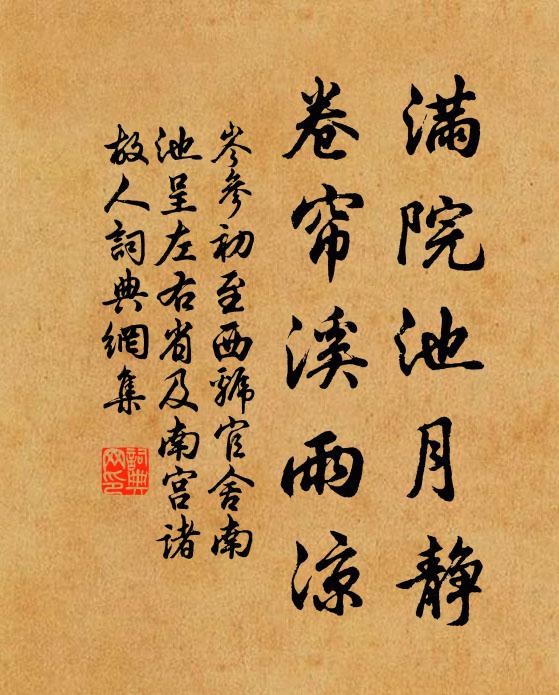 滿院池月静
卷帘溪雨凉
岑參初至西虢官舍南
池呈左右省及南宫諸
故人詞典網集
詞典網印